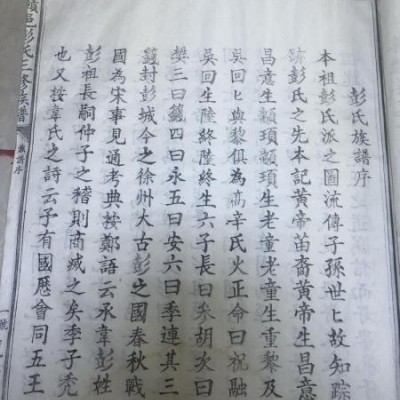 彭氏族譜序
本祖彭氏派之圖流傳子孫世匕故知踪
跡彭氏之先本記黃帝苗裔黃帝生昌意
昌意生顓頊顓頊生老童老童生重黎及
吳回匕與黎俱為高辛氏火正命曰祝融
吳回生陸終陸終生六子長曰參胡次曰
樊三曰籛四曰永五曰安六曰季連其三
籛封彭城今之徐州大古彭之國春秋戰
國為宋事見通考典按鄭語云承韋彭姓
彭祖長嗣仲子之稽則商滅之矣李子禿
也又按韋氏之詩云子有國歷會同五王
彭氏三修族譜
族譜序